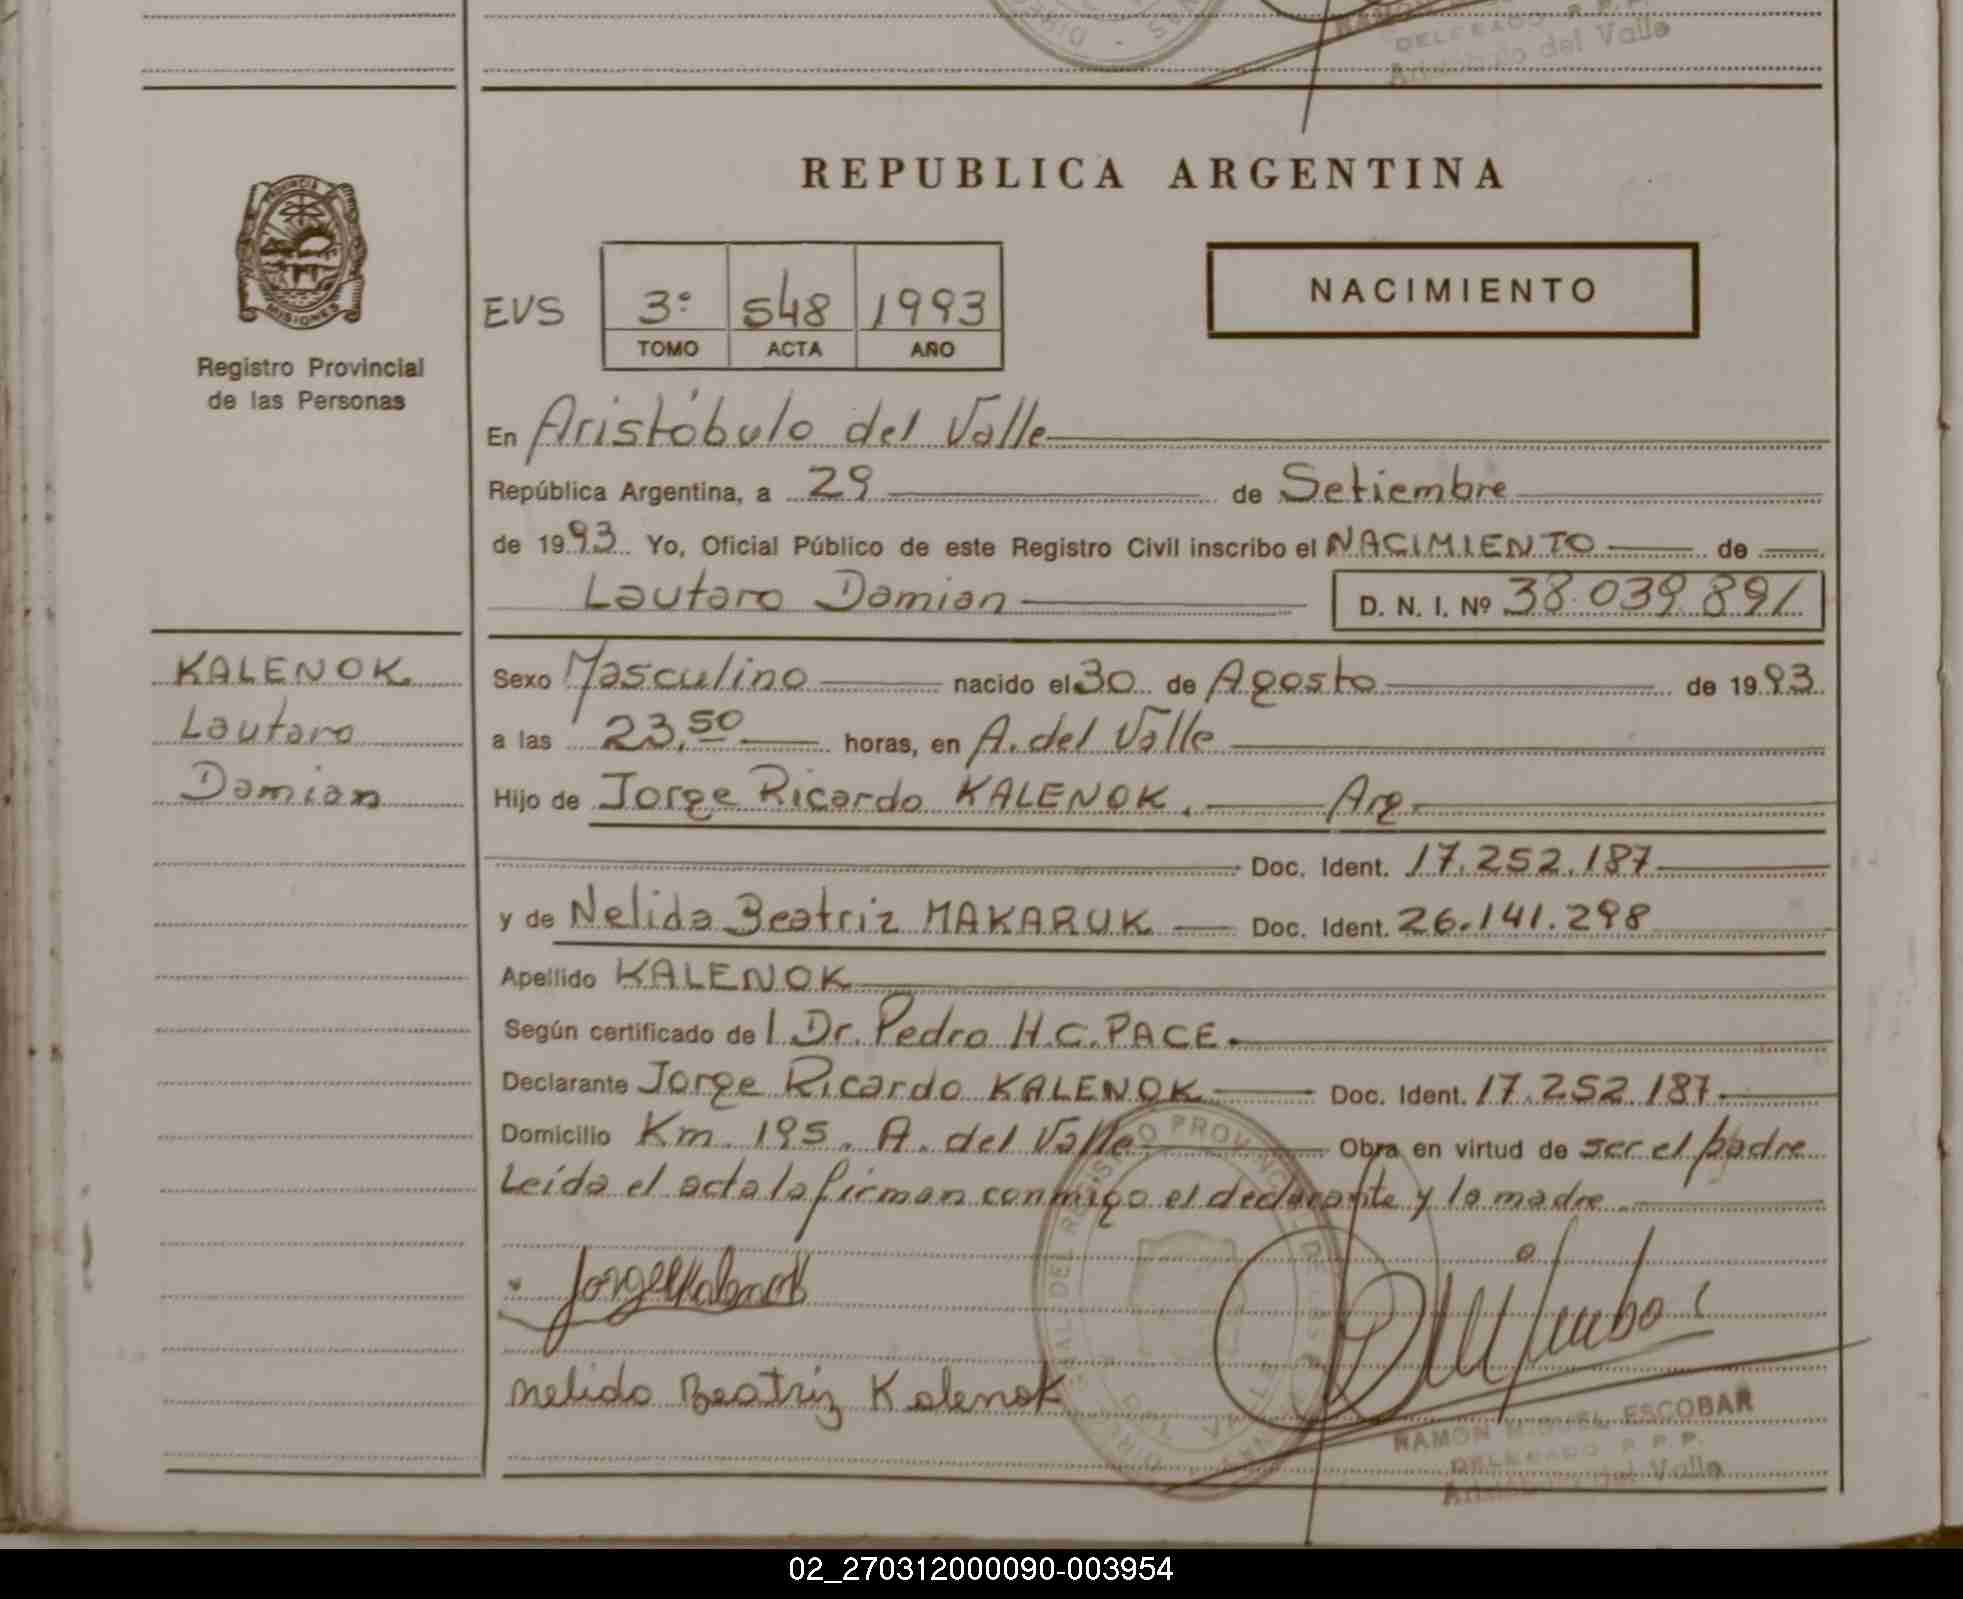 DELEGADO R.P.P.
Aristóbulo del Valle
REPUBLICA ARGENTINA
PROVINCIA
MISIONES
Registro Provincial
de las Personas
NACIMIENTO
EVS 3º 548 1993
TOMO ACTA AÑO
En Aristóbulo del Valle
República Argentina, a 29 de Setiembre
de 1993 Yo, Oficial Público de este Registro Civil inscribo el NACIMIENTO de
Lautaro Damian D. N. I. Nº 38.039.891
KALENOK
Lautaro
Damian
Sexo Masculino nacido el 30 de Agosto de 1993
a las 23,50 horas, en A. del Valle
Hijo de Jorge Ricardo KALENOK. Arg.
Doc. Ident. 17.252.187
y de Nelida Beatriz MAKARUK Doc. Ident. 26.141.298
Apellido KALENOK
Según certificado de l Dr. Pedro H.C. PACE.
Declarante Jorge Ricardo KALENOK Doc. Ident. 17.252.187
Domicilio Km. 195. A. del Valle Obra en virtud de ser el padre
Leída el acta la firman conmigo el declarante y la madre.
Jorge Kalenok
nelida Beatriz Kalenok
RAMON MIGUEL ESCOBAR
DELEGADO R.P.P.
Aristóbulo del Valle
02_270312000090-003954